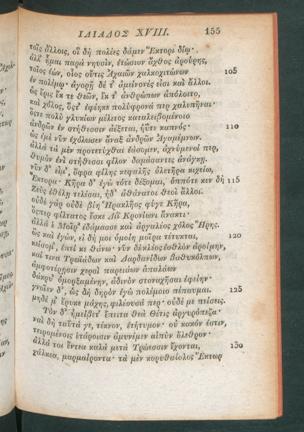 ΙΛΙΑΔΟΣ XVIII. 155
τοῖς ἄλλοις, οἳ δὴ πολέες δάμεν Ἕκτορι δίῳ·
ἀλλ' ἧμαι παρὰ νηυσὶν, ἐτώσιον ἄχθος ἀρούρης,
τοῖος ἐὼν, οἷος οὔτις Ἀχαιῶν χαλκοχιτώνων 105
ἐν πολέμῳ· ἀγορῇ δέ τ' ἀμείνονές εἰσι καὶ ἄλλοι.
ὡς ἔρις ἔκ τε θεῶν, ἔκ τ' ἀνθρώπων ἀπόλοιτο,
καὶ χόλος, ὅστ' ἐφέηκε πολύφρονά περ χαλεπῆναι·
ὅστε πολὺ γλυκίων μέλιτος καταλειβομένοιο
ἀνδρῶν ἐν στήθεσσιν ἀέξεται, ἠΰτε καπνός· 110
ὡς ἐμὲ νῦν ἐχόλωσεν ἄναξ ἀνδρῶν Ἀγαμέμνων.
ἀλλὰ τὰ μὲν προτετύχθαι ἐάσομεν, ἀχνύμενοί περ,
θυμὸν ἐνὶ στήθεσσι φίλον δαμάσαντες ἀνάγκῃ.
νῦν δ' εἶμ', ὄφρα φίλης κεφαλῆς ὀλετῆρα κιχείω,
Ἕκτορα· Κῆρα δ' ἐγὼ τότε δέξομαι, ὁππότε κεν δὴ 115
Ζεὺς ἐθέλῃ τελέσαι, ἠδ' ἀθάνατοι θεοὶ ἄλλοι.
οὐδὲ γὰρ οὐδὲ βίη Ἡρακλῆος φύγε Κῆρα,
ὅσπερ φίλτατος ἔσκε Διῒ Κρονίωνι ἄνακτι·
ἀλλά ἑ Μοῖρ' ἐδάμασσε καὶ ἀργαλέος χόλος Ἥρης.
ὣς καὶ ἐγὼν, εἰ δή μοι ὁμοίη μοῖρα τέτυκται, 120
κείσομ', ἐπεί κε θάνω· νῦν δὲ κλέος ἐσθλὸν ἀροίμην,
καί τινα Τρωϊάδων καὶ Δαρδανίδων βαθυκόλπων,
ἀμφοτέρῃσιν χερσὶ παρειάων ἁπαλάων
δάκρυ' ὀμορξαμένην, ἀδινὸν στοναχῆσαι ἐφείην·
γνοῖεν δ', ὡς δὴ δηρὸν ἐγὼ πολέμοιο πέπαυμαι. 125
μηδέ μ' ἔρυκε μάχης, φιλέουσά περ· οὐδέ με πείσεις.
Τὸν δ' ἠμείβετ' ἔπειτα θεὰ Θέτις ἀργυρόπεζα·
ναὶ δὴ ταῦτά γε, τέκνον, ἐτήτυμον· οὐ κακόν ἐστιν,
τειρομένοις ἑτάροισιν ἀμυνέμεν αἰπὺν ὄλεθρον·
ἀλλά τοι ἔντεα καλὰ μετὰ Τρώεσσιν ἔχονται, 130
χάλκεα, μαρμαίροντα· τὰ μὲν κορυθαίολος Ἕκτωρ